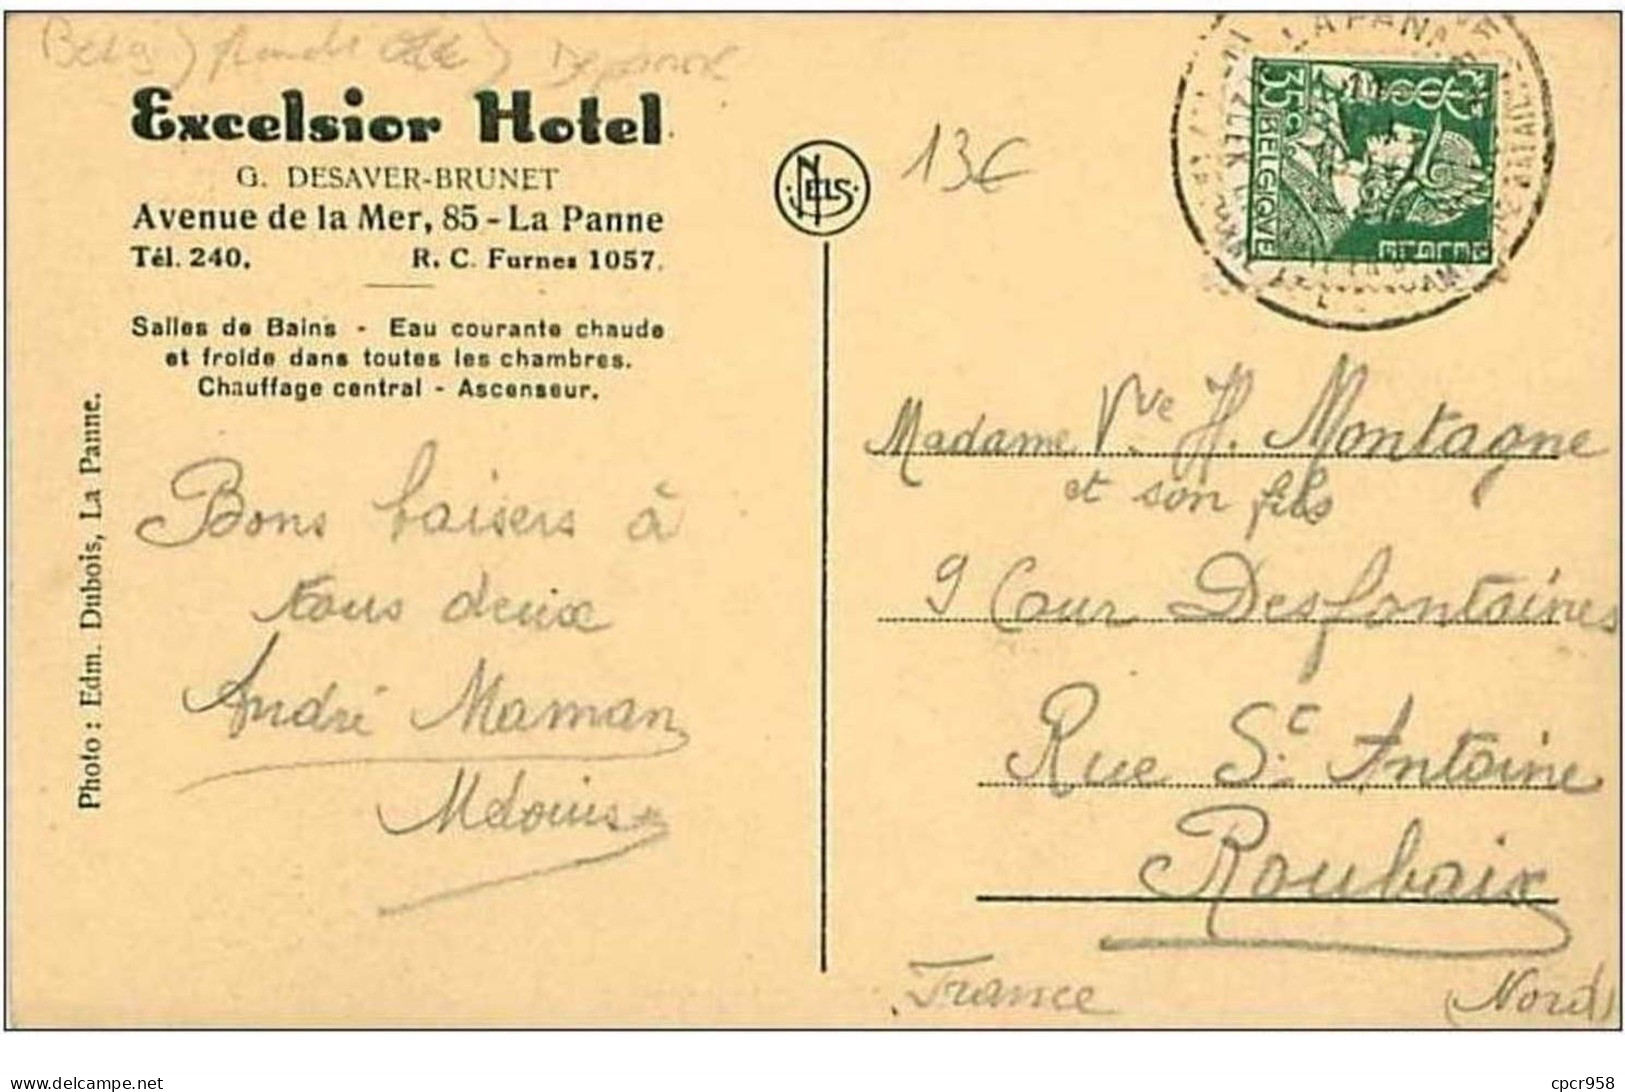 Excelsior Hotel
G. DESAVER-BRUNET
Avenue de la Mer, 85 - La Panne
Tél. 240. R. C. Furnes 1057.
Salles de Bains - Eau courante chaude
et froide dans toutes les chambres.
Chauffage central - Ascenseur.
Photo : Edm. Dubois, La Panne.
Bons baisers à
tous deux
André Maman
NELS
13€
LA PANNE
35c BELGIQUE BELGIE
Madame Vve H. Montagne
et son fils
9 Cour Desfontaines
Rue St Antoine
Roubaix
France (Nord)
cpcr958